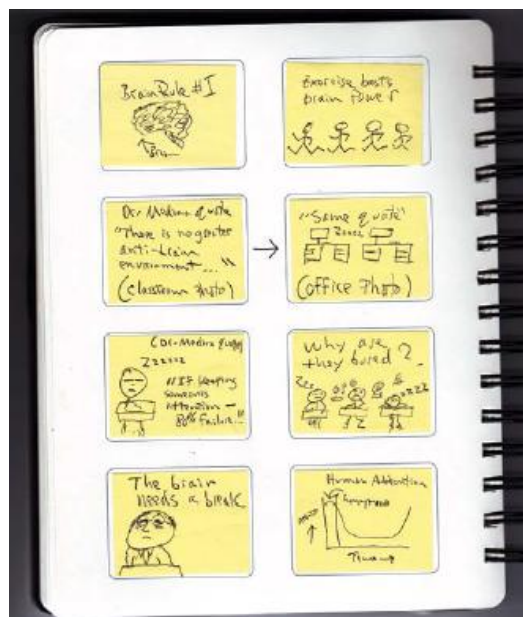 Brain Rule #1
Brain
Exercise boosts
brain power
Dr. Medina quote
"There is no greater
anti-brain
environment..."
(classroom photo)
"Same quote"
zzzzz
(office photo)
(Dr. Medina quote)
Zzzzzz
"If keeping
someone's
attention -
80% failure.."
Why are
they bored?
Zzz
zzzz
The brain
needs a break
Human Attention
Time